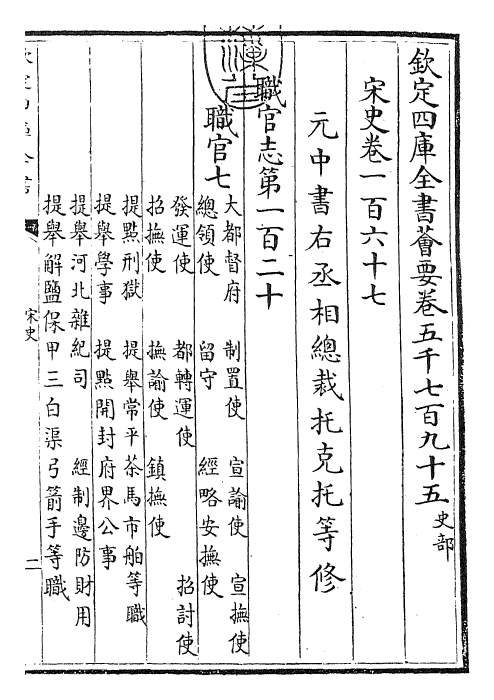 欽定四庫全書薈要卷五千七百九十五 史部
宋史卷一百六十七
元中書右丞相總裁托克托等修
職官志第一百二十
職官七
大都督府 制置使 宣諭使 宣撫使
總領使 留守 經略安撫使
發運使 都轉運使 招討使
招撫使 撫諭使 鎮撫使
提點刑獄 提舉常平茶馬市舶等職
提舉學事 提點開封府界公事
提舉河北雜紀司 經制邊防財用
提舉解鹽保甲三白渠弓箭手等職
欽定四庫全書
宋史
二